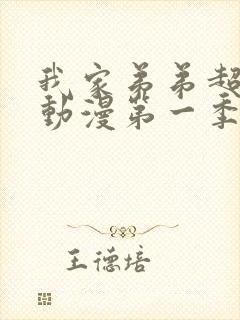 我家弟弟超
動漫第一季
王德培